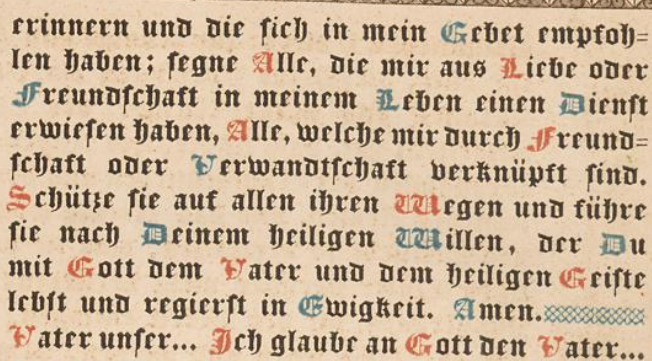 erinnern und die sich in mein Gebet empfoh=
len haben; segne Alle, die mir aus Liebe oder
Freundschaft in meinem Leben einen Dienst
erwiesen haben, Alle, welche mir durch Freund=
schaft oder Verwandtschaft verknüpft sind.
Schütze sie auf allen ihren Wegen und führe
sie nach Deinem heiligen Willen, der Du
mit Gott dem Vater und dem heiligen Geiste
lebst und regierst in Ewigkeit. Amen.
Vater unser... Ich glaube an Gott den Vater...